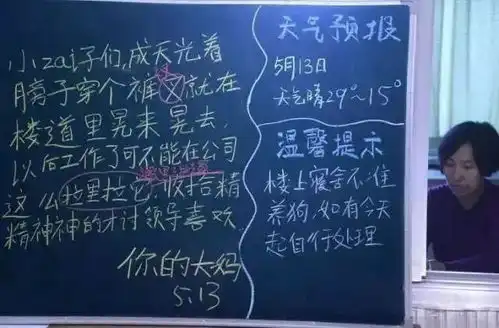 小zai子们,成天光着
膀子穿个裤X就在
楼道里晃来晃去,
以后工作了可不能在公司
这么拉里拉它,收拾精
精神神的才讨领导喜欢
你的大妈
5.13
天气预报
5月13日
天气晴29°~15°
温馨提示
楼上寝舍不准
养狗,如有今天
起自行处理